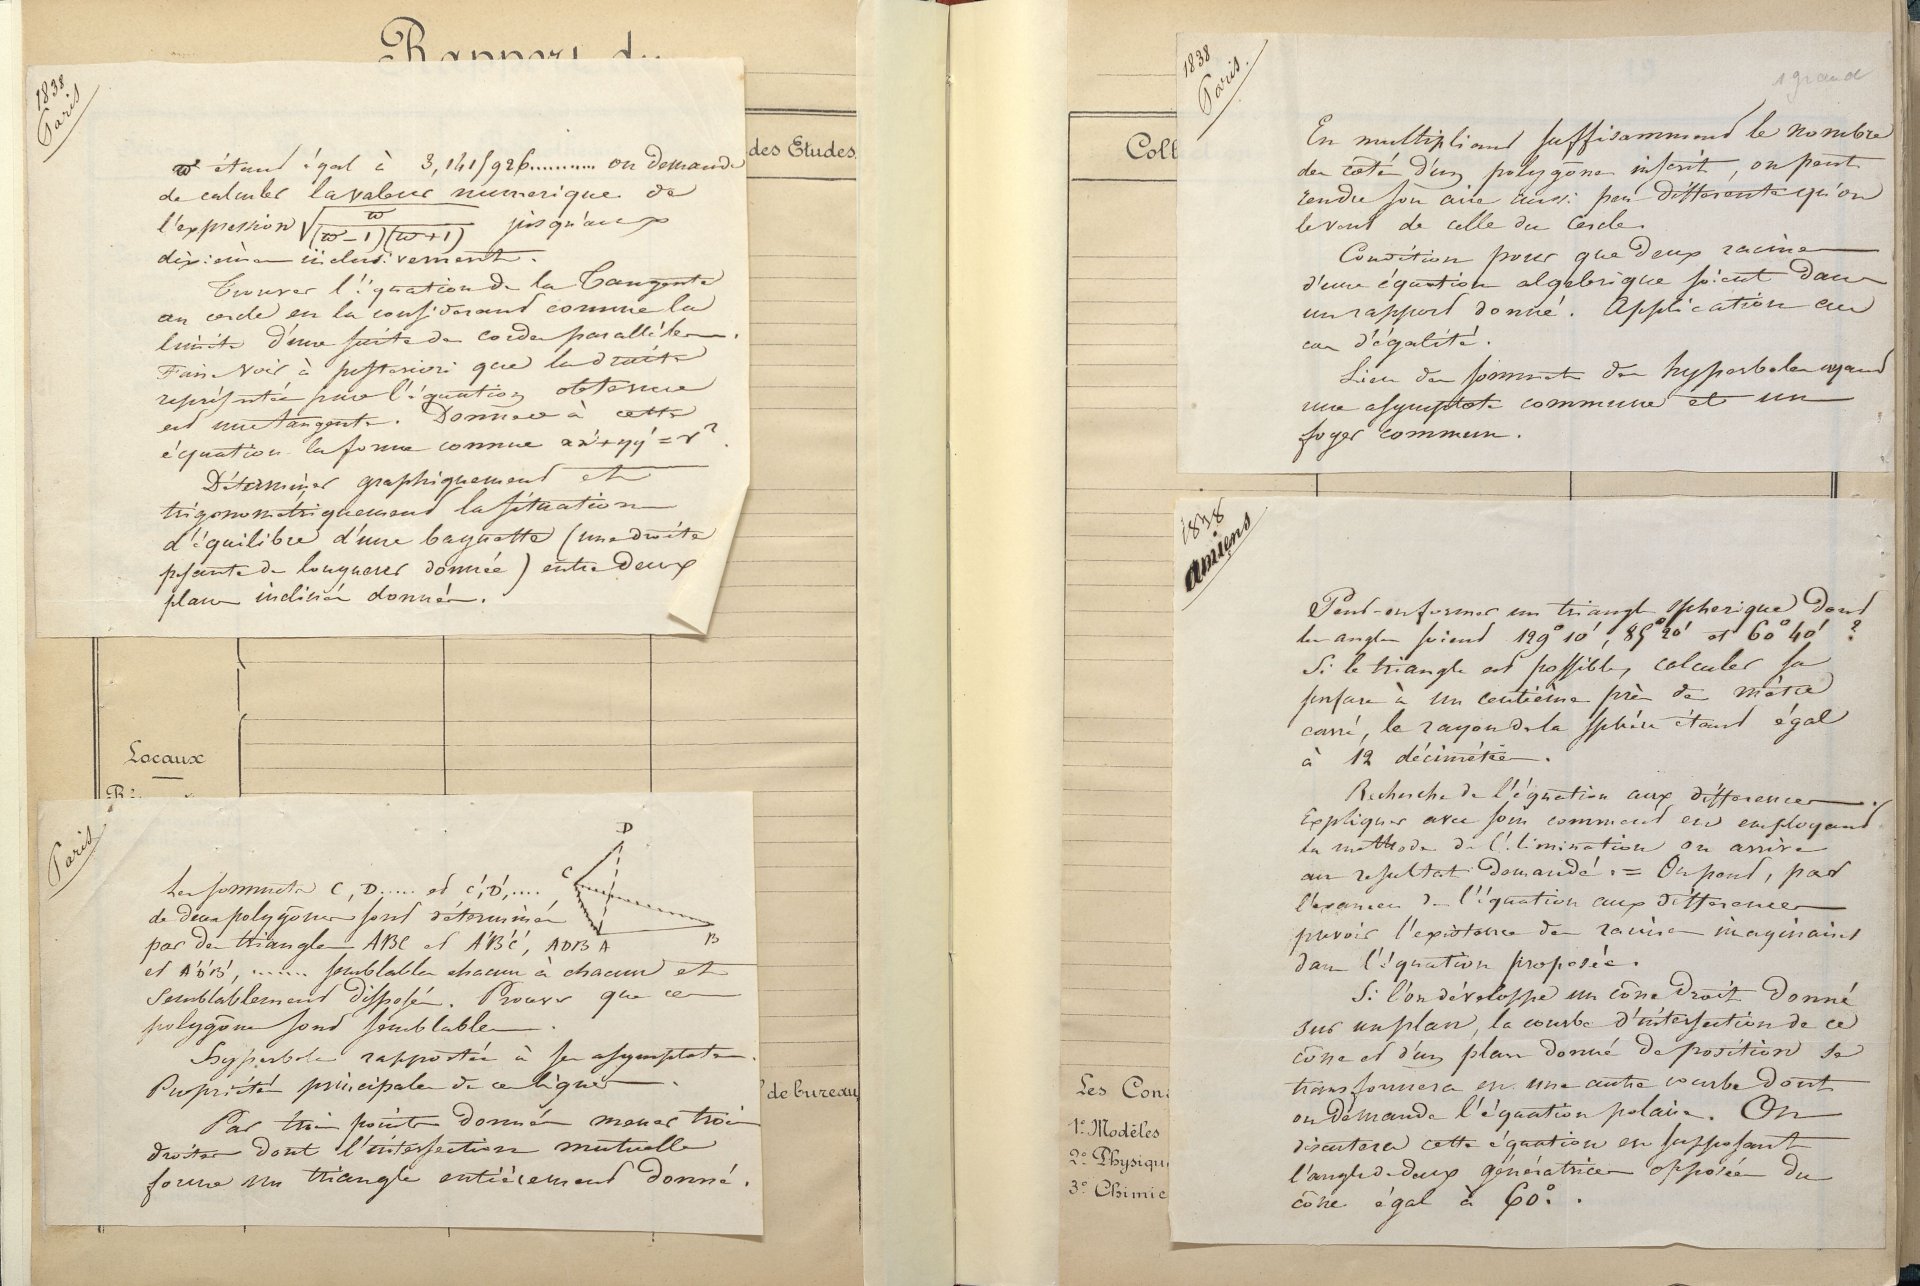 Rapport du
des Etudes
1838
Paris
ϖ étant égal à 3,1415926.......... on demande
de calculer la valeur numerique de
l'expression √(ϖ/((ϖ-1)(ϖ+1))) jusqu'aux
dixièmes inclusivement.
Trouver l'équation de la Tangente
au cercle en la considerant comme la
limite d'une suite de cordes parallèles.
Faire voir à posteriori que la droite
représentée par l'équation obtenue
est une tangente. Donner à cette
équation la forme connue xx'+yy'=r².
Déterminer graphiquement et
trigonométriquement la situation
d'équilibre d'une baguette (une droite
pesante de longueur donnée) entre deux
plans inclinés donnés.
Locaux
Paris
D
C
A
B
Les sommets C, D..... et C', D',....
de deux polygônes sont déterminés
par des triangles ABC et A'B'C', ADB
et A'D'B', ....... semblables chacun à chacun et
semblablement disposés. Prouver que ces
polygônes sont semblables.
Hyperbole rapportée à ses asymptotes.
Propriétés principales de ces lignes.
Par trois points donnés mener trois
droites dont l'intersection mutuelle
forme un triangle entièrement donné.
de bureau
Coll
1838
Paris.
1 grand
En multipliant suffisamment le nombre
des côtés d'un polygône inscrit, on peut
rendre son aire aussi peu differente qu'on
le veut de celle du Cercle.
Condition pour que deux racines
d'une équation algébrique soient dans
un rapport donné. Application au
cas d'égalité.
Lieu des sommets des hyperboles ayant
une asymptote commune et un
foyer commun.
1838
amiens
Peut-on former un triangle spherique dont
les angles soient 129° 10', 85° 20' et 60° 40' ?
Si le triangle est possible, calculer sa
surface à un centième près de mètre
carré, le rayon de la sphère étant égal
à 12 décimètres.
Recherche de l'équation aux différences.
Expliquer avec soin comment en employant
la méthode de l'élimination on arrive
au resultat demandé. = On peut, par
l'examen de l'équation aux différences
prévoir l'existence des racines imaginaires
dans l'équation proposée.
Si l'on développe un cône droit donné
sur un plan, la courbe d'intersection de ce
cône et d'un plan donné de position se
transformera en une autre courbe dont
on demande l'équation polaire. On
discutera cette équation en supposant
l'angle de deux génératrices opposées du
cône égal à 60°.
Les Con
1° Modèles
2° Physiqu
3° Chimie